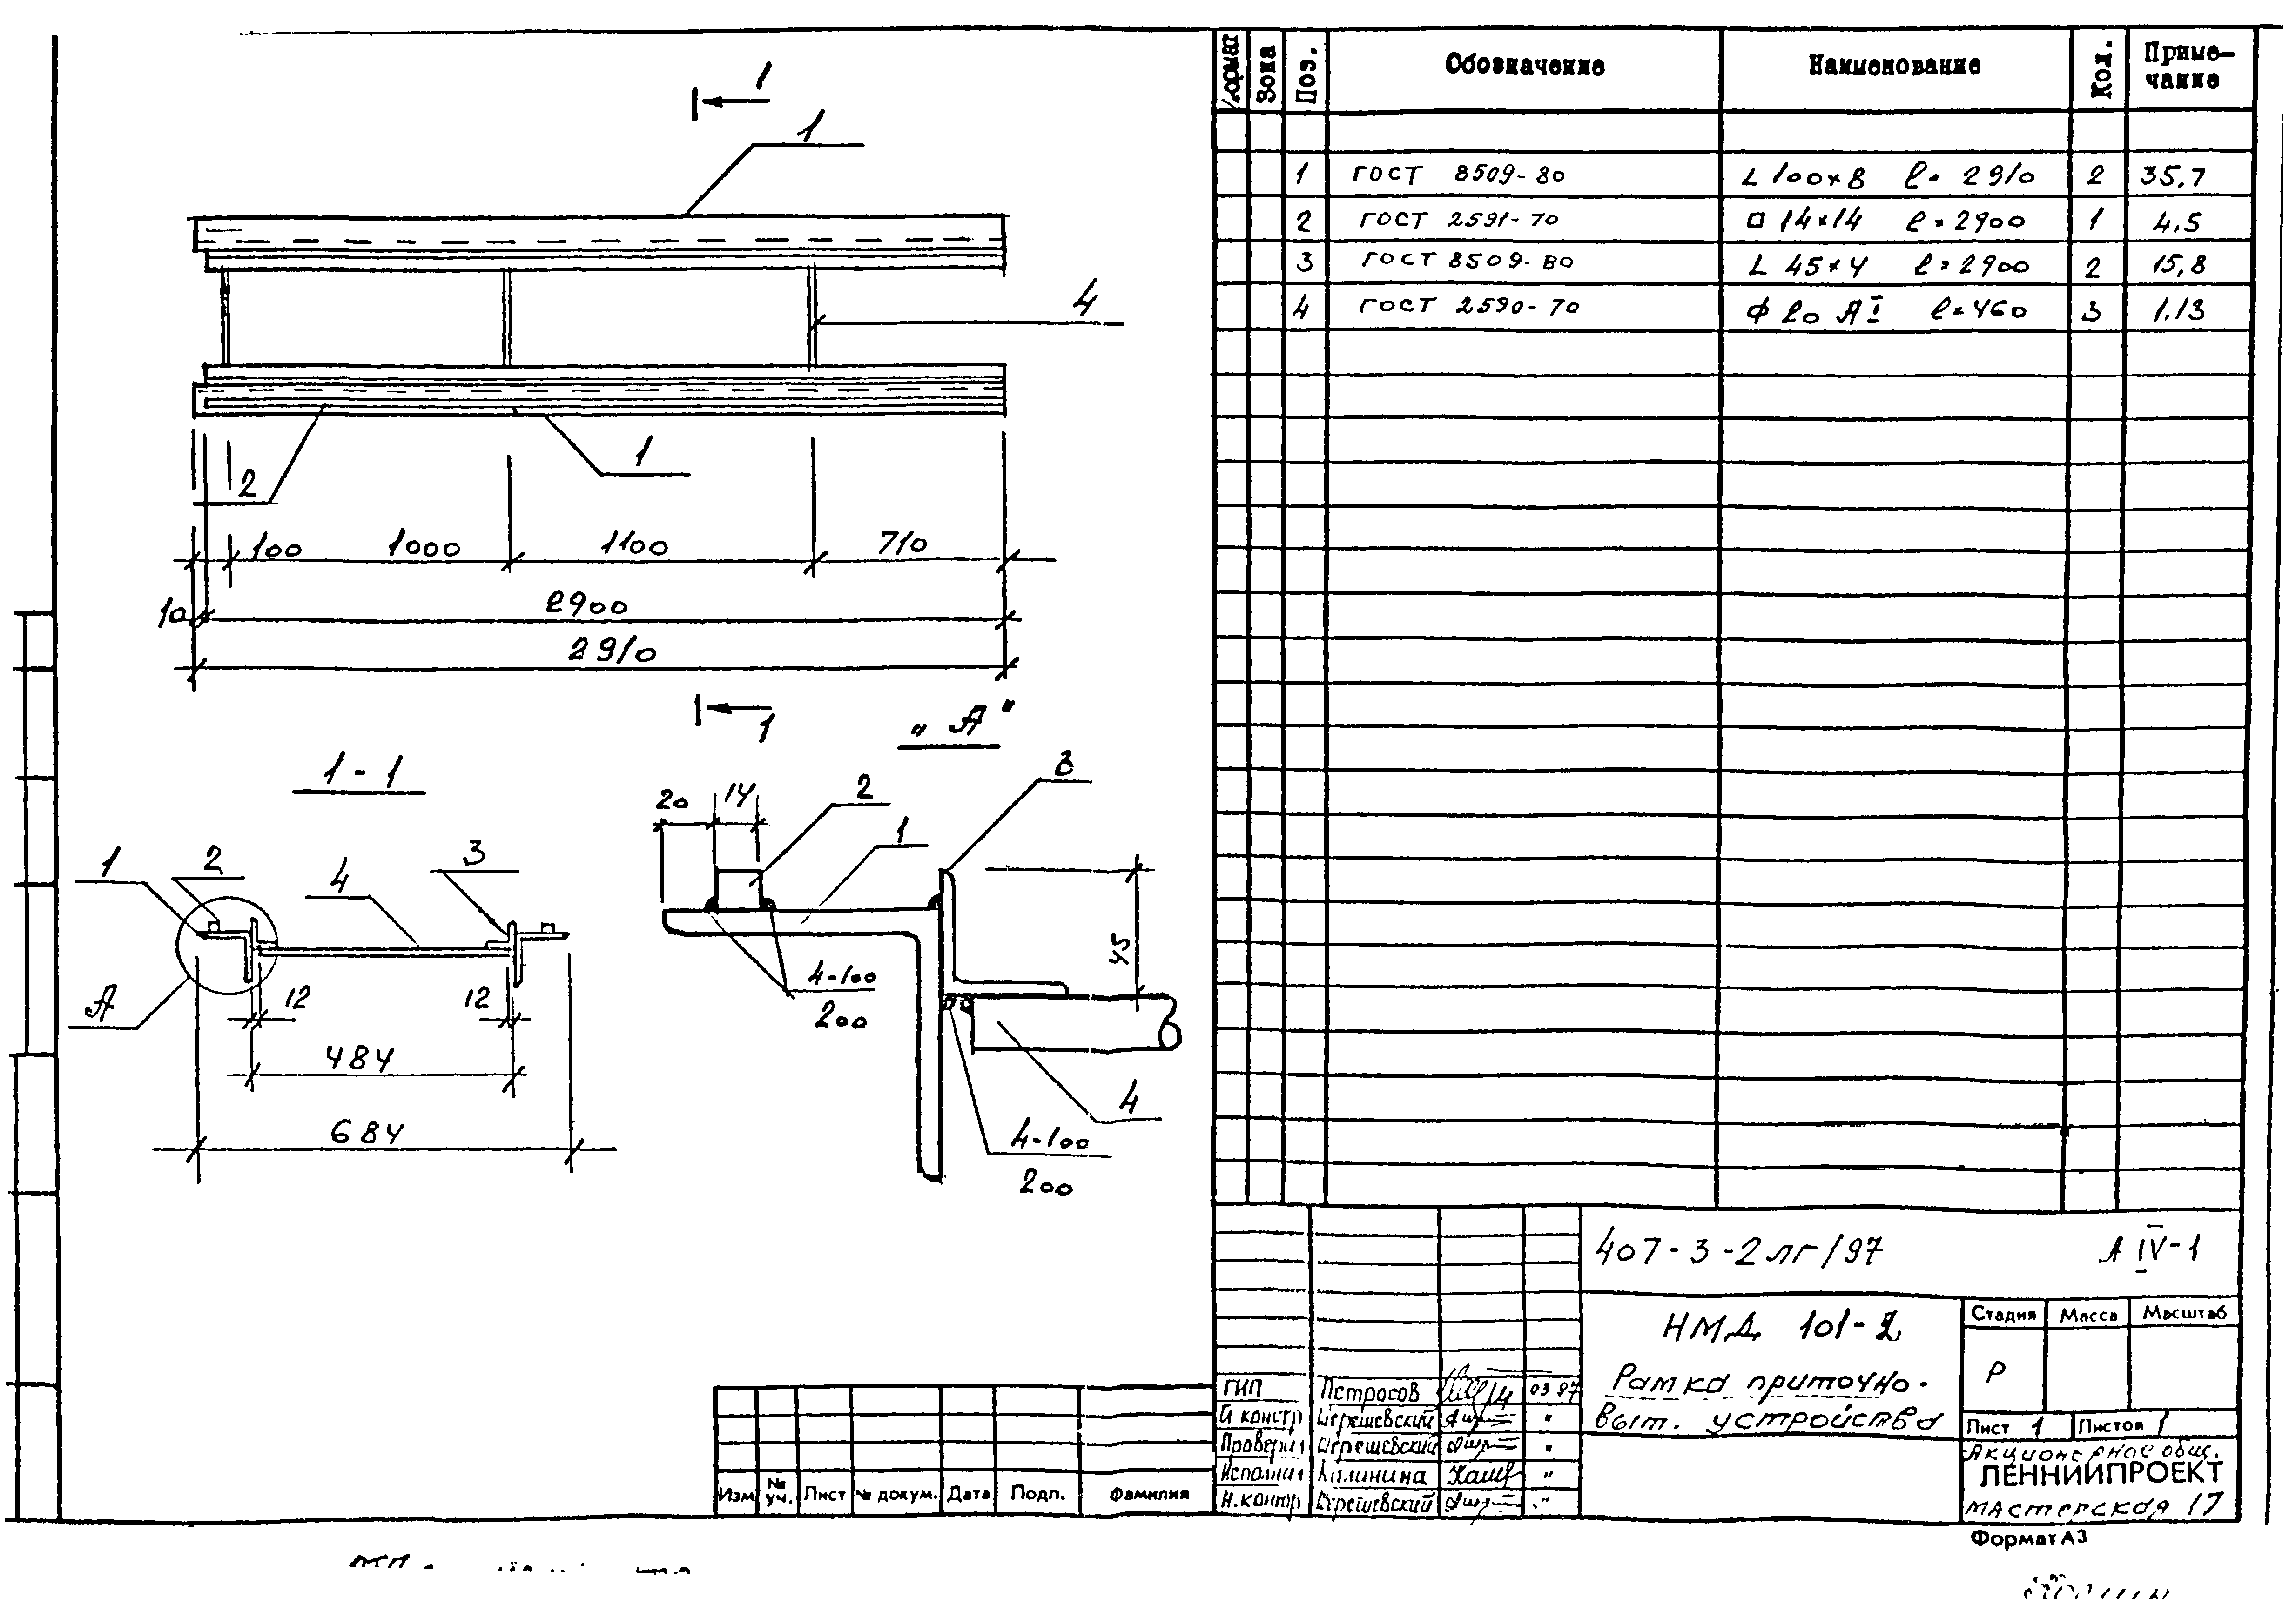 1
1
4
2
1
100 1000 1100 710
10 2900
2910
1
„А"
1-1
1 2 4 3
А
12 12
484
684
20 14 2 1 3
45
4-100
200
4
4-100
200
Формат Зона Поз. Обозначение Наименование Кол. Приме-
чание
1 ГОСТ 8509-80 L 100×8 ℓ=2910 2 35,7
2 ГОСТ 2591-70 □ 14×14 ℓ=2900 1 4.5
3 ГОСТ 8509-80 L 45×4 ℓ=2900 2 15,8
4 ГОСТ 2590-70 ф 20 АI ℓ=460 3 1.13
407-3-2лг/97 А IV-1
НМД 101-2
Рамка приточно-
выт. устройства
Стадия Масса Масштаб
Р
Лист 1 Листов 1
Акционерное общ.
ЛЕННИИПРОЕКТ
мастерская 17
ГИП Петросов 03 97
Гл констр Шерешевский "
Проверил Шерешевский "
Исполнил Калинина "
Н.контр Шерешевский "
Изм № уч. Лист № докум. Дата Подп. Фамилия
Формат А3